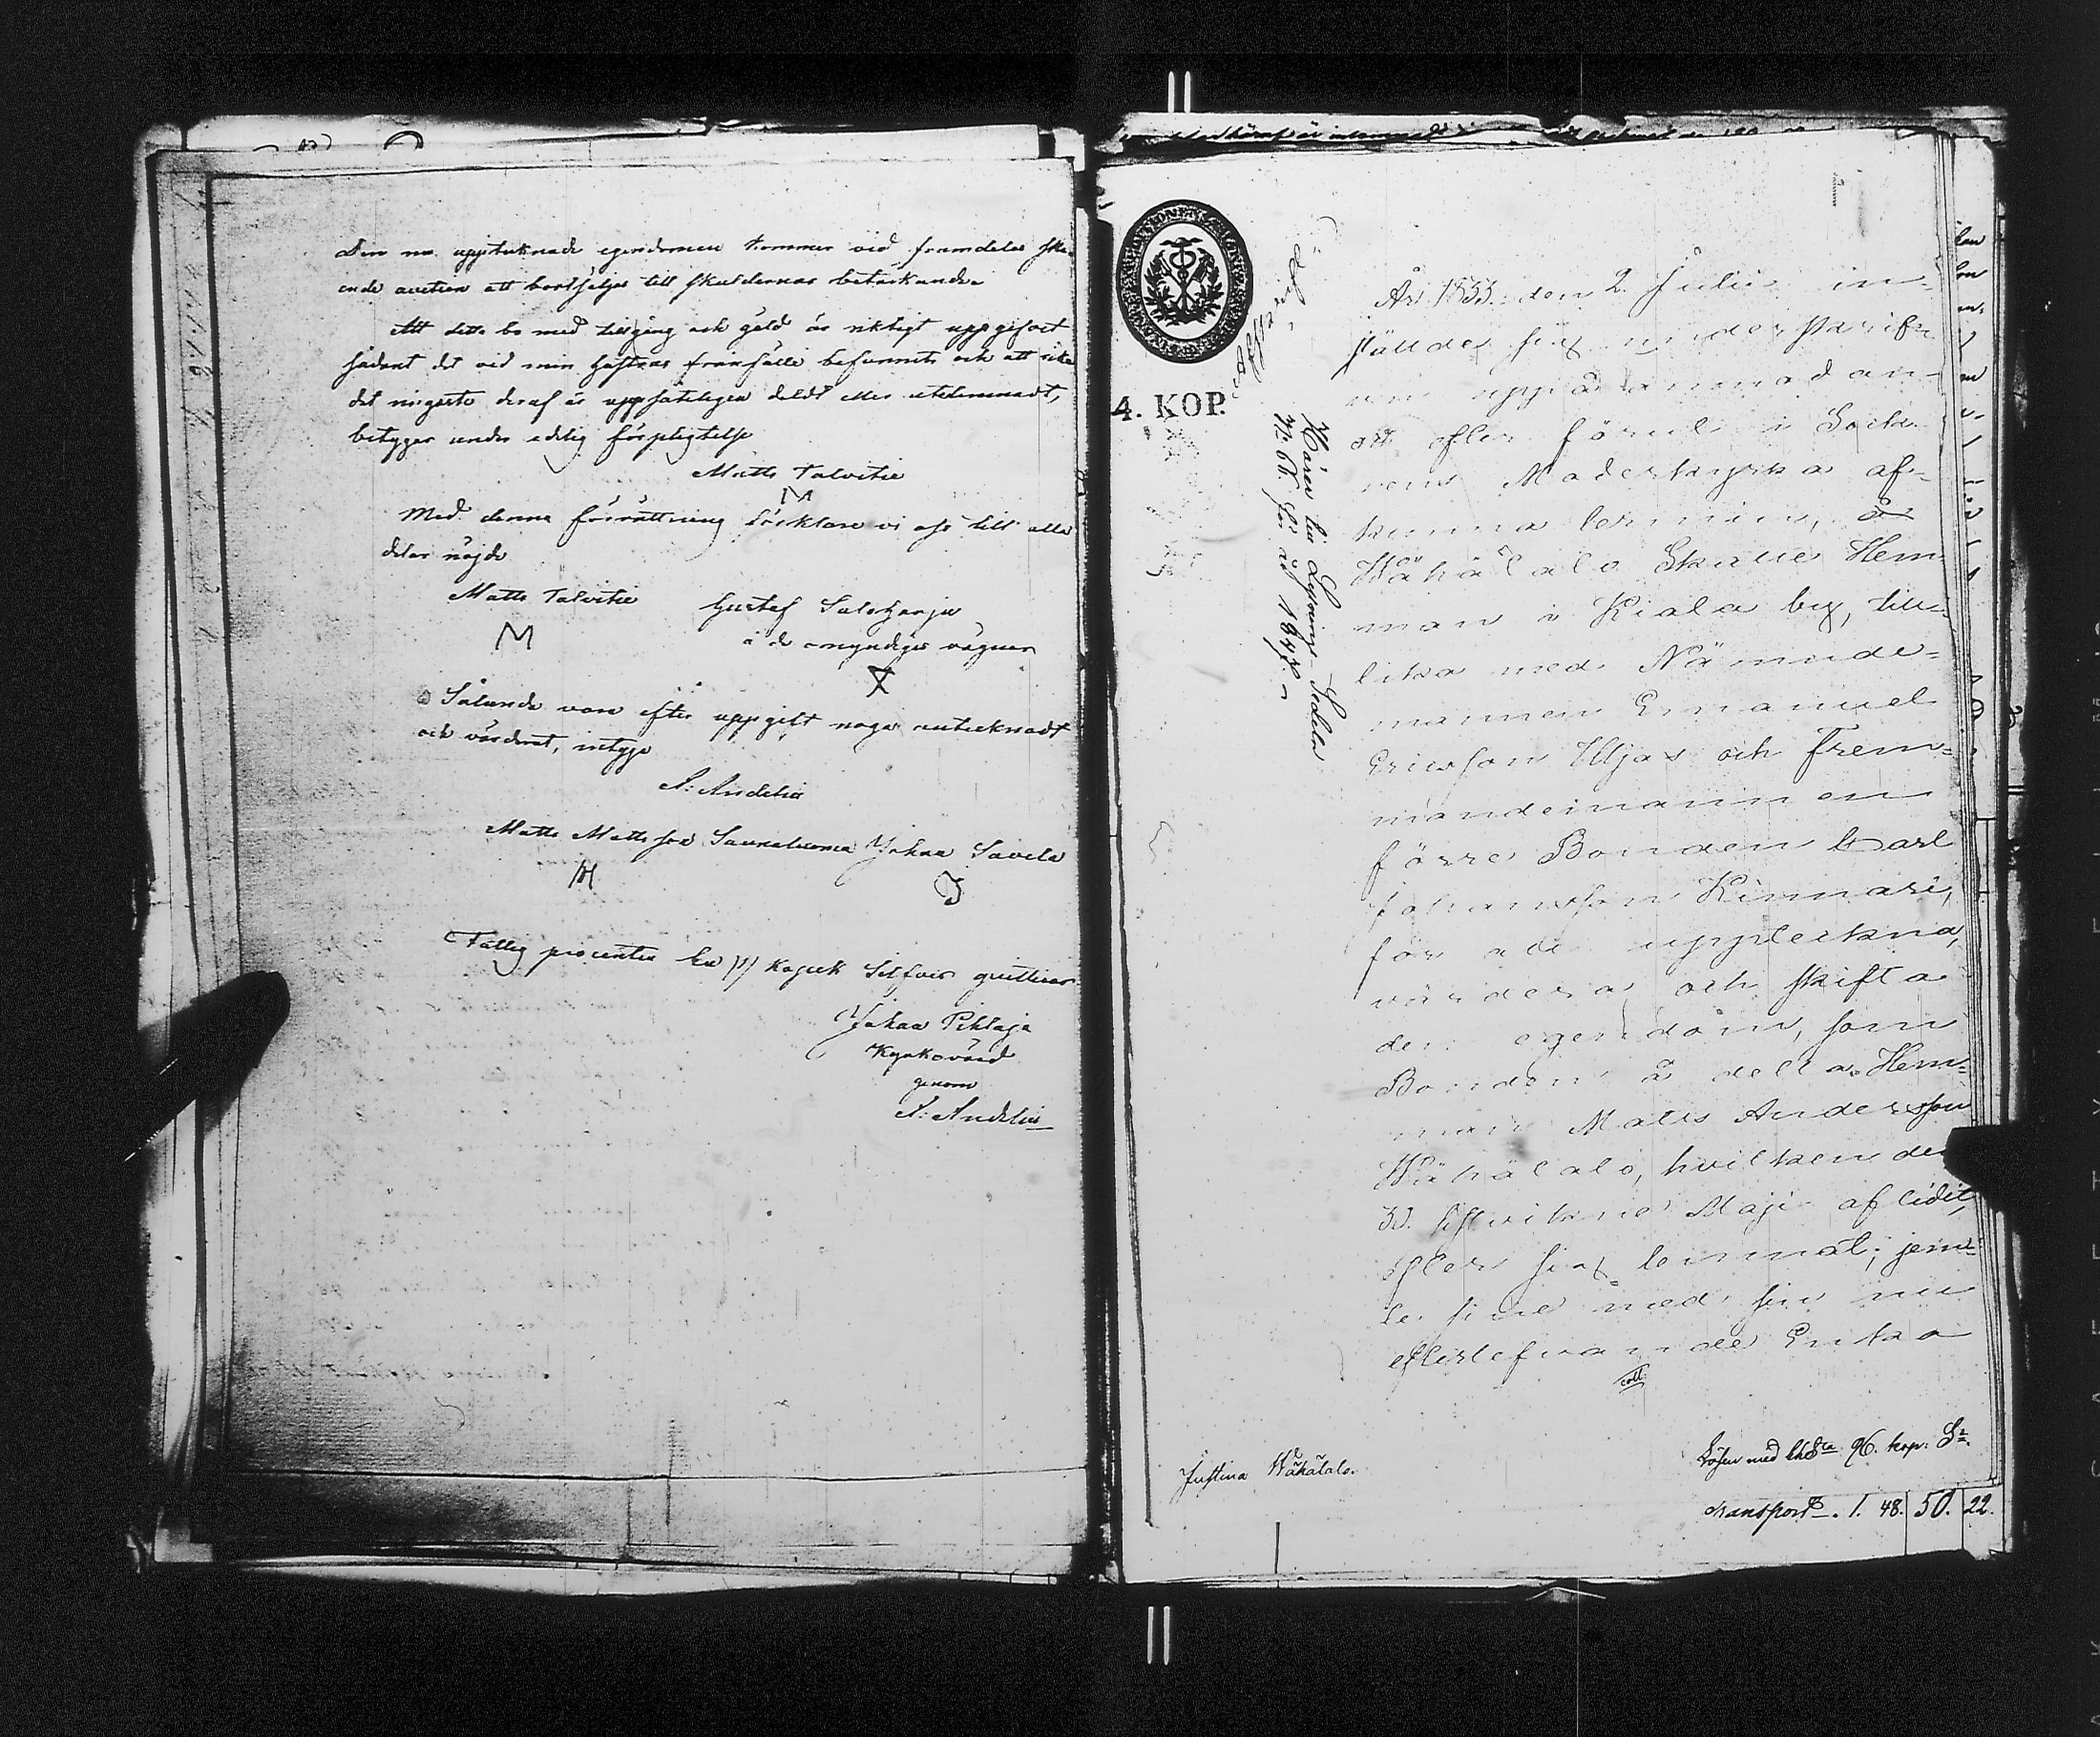 Den nu upptecknade egendomen kommer vid framdeles ske-
ende auction att bortsäljas till skuldernas betäckande.
Att detta bo med tillgång och gäld är riktigt uppgifvet
sådant det vid min hustrus frånfälle befunnits och att icke
det ringaste deraf är uppsåteligen doldt eller utelemnadt,
betygar under edelig förpligtelse
Matts Talvitie
M
Med denna förrättning förklare vi oss till alla
delar nöjde
Matts Talvitie Gustaf Saloharju
i de omyndiges vägnar
M
Sålunda vara efter uppgift noga antecknadt
och värderat, intyga
A: Andelin
Matts Mattsson Saunaluoma Johan Savela
M J
Fattig procenten En (1) kopek Silfver quitteras
Johan Pihlaja
Kyrkovärd
genom
A: Andelin
4. KOP.
Hörer till Lösnings-Sedeln
N:o 61. för år 1847.
År 1833. den 2. Julii in-
stälde sig underskrifv-
ren uppå anmodan
och efter förut i Sock-
nens Moderkyrka af-
kunna termin, å
Wähätalo Skatte Hem-
man i Kiala by, till-
lika med Nämnde-
mannen Emanuel
Ericsson Uljas och Frem-
mandemannen
förre Bonden Carl
Johansson Kinnari,
för att uppteckna,
värdera och skifta
den egendom, som
Bonden å detta Hem-
man Matts Andersson
Wähätalo, hvilken den
30. sistvikne Maji aflidit,
efter sig lemnat; jem-
te sine med sin nu
efterlefvande Enka
coll.
Justina Wähätalo.
Lösen med Ch Sta 96. kop: Sr.
Transport. 1. 48. 50. 22.